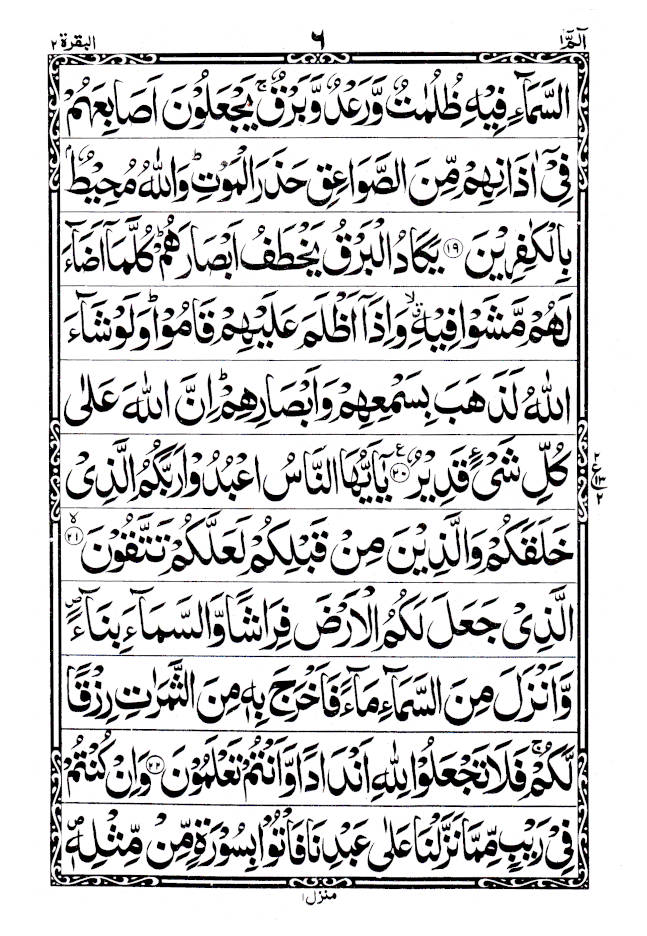 الٓمّٓ ١ ٦ البقرة ٢
السَّمَآءِ فِيْهِ ظُلُمٰتٌ وَّرَعْدٌ وَّبَرْقٌ ۚ يَجْعَلُوْنَ اَصَابِعَهُمْ
فِيْۤ اٰذَانِهِمْ مِّنَ الصَّوَاعِقِ حَذَرَ الْمَوْتِ ؕ وَاللّٰهُ مُحِيْطٌۢ
بِالْكٰفِرِيْنَ ۝١٩ يَكَادُ الْبَرْقُ يَخْطَفُ اَبْصَارَهُمْ ؕ كُلَّمَاۤ اَضَآءَ
لَهُمْ مَّشَوْا فِيْهِ ۙۗ وَاِذَاۤ اَظْلَمَ عَلَيْهِمْ قَامُوْا ؕ وَلَوْ شَآءَ
اللّٰهُ لَذَهَبَ بِسَمْعِهِمْ وَاَبْصَارِهِمْ ؕ اِنَّ اللّٰهَ عَلٰى
كُلِّ شَيْءٍ قَدِيْرٌ ۝٢٠ ع يٰۤاَيُّهَا النَّاسُ اعْبُدُوْا رَبَّكُمُ الَّذِيْ
٢ ع ١٣ ٢
خَلَقَكُمْ وَالَّذِيْنَ مِنْ قَبْلِكُمْ لَعَلَّكُمْ تَتَّقُوْنَ ۙ۝٢١
الَّذِيْ جَعَلَ لَكُمُ الْاَرْضَ فِرَاشًا وَّالسَّمَآءَ بِنَآءً ۪
وَّاَنْزَلَ مِنَ السَّمَآءِ مَآءً فَاَخْرَجَ بِهٖ مِنَ الثَّمَرٰتِ رِزْقًا
لَّكُمْ ۚ فَلَا تَجْعَلُوْا لِلّٰهِ اَنْدَادًا وَّاَنْتُمْ تَعْلَمُوْنَ ۝٢٢ وَاِنْ كُنْتُمْ
فِيْ رَيْبٍ مِّمَّا نَزَّلْنَا عَلٰى عَبْدِنَا فَاْتُوْا بِسُوْرَةٍ مِّنْ مِّثْلِهٖ ۪
منزل ١